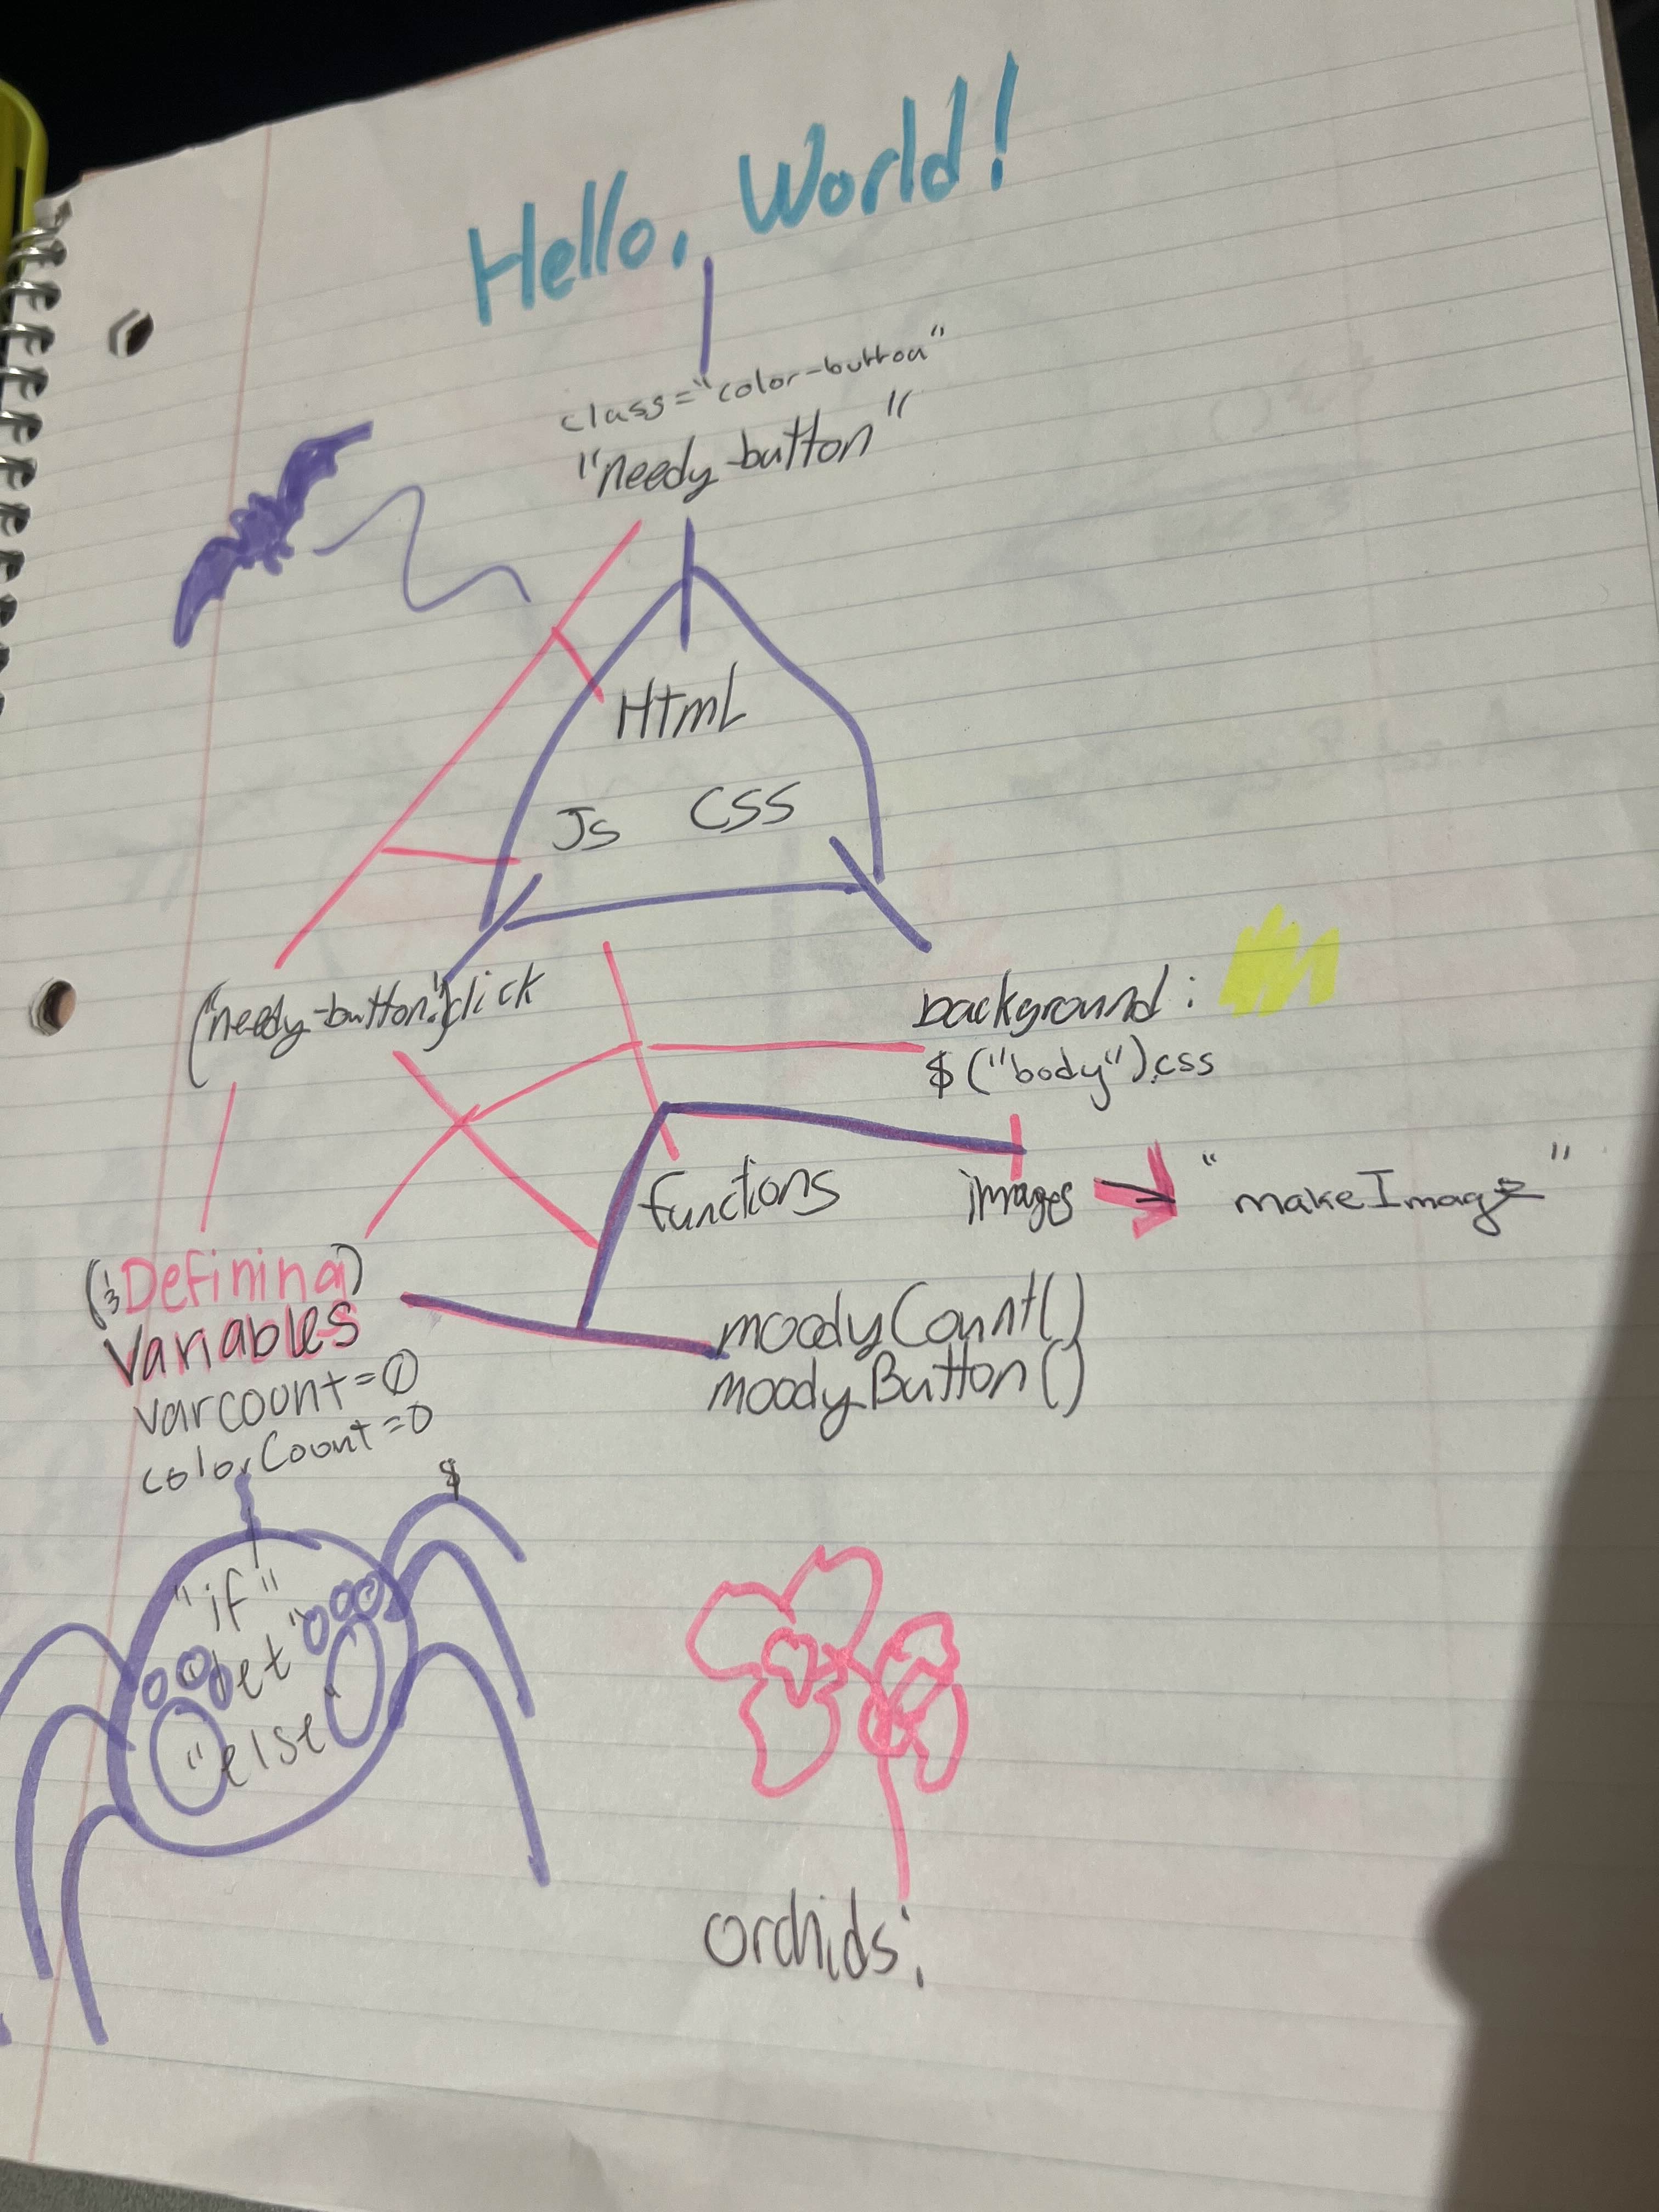 Hello, World!
class="color-button"
"needy-button"
HTML
Js CSS
("needy-button").click
background:
$("body").css
functions
images
"makeImage"
Defining
Variables
var count=0
colorCount=0
moodyCount()
moodyButton()
$
"if"
"let"
"else"
orchids;